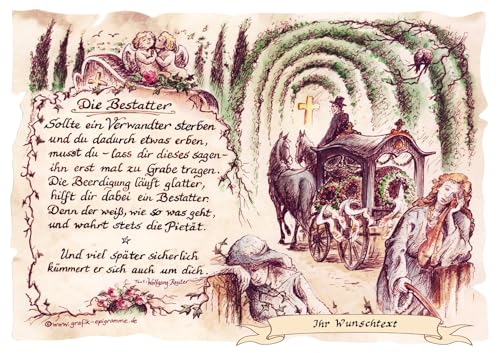 Die Bestatter
Sollte ein Verwandter sterben
und du dadurch etwas erben,
musst du - lass dir dieses sagen -
ihn erst mal zu Grabe tragen.
Die Beerdigung läuft glatter,
hilft dir dabei ein Bestatter.
Denn der weiß, wie so was geht,
und wahrt stets die Pietät.
Und viel später sicherlich
kümmert er sich auch um dich.
Text: Wolfgang Reuter
©www.grafik-epigramme.de
Ihr Wunschtext